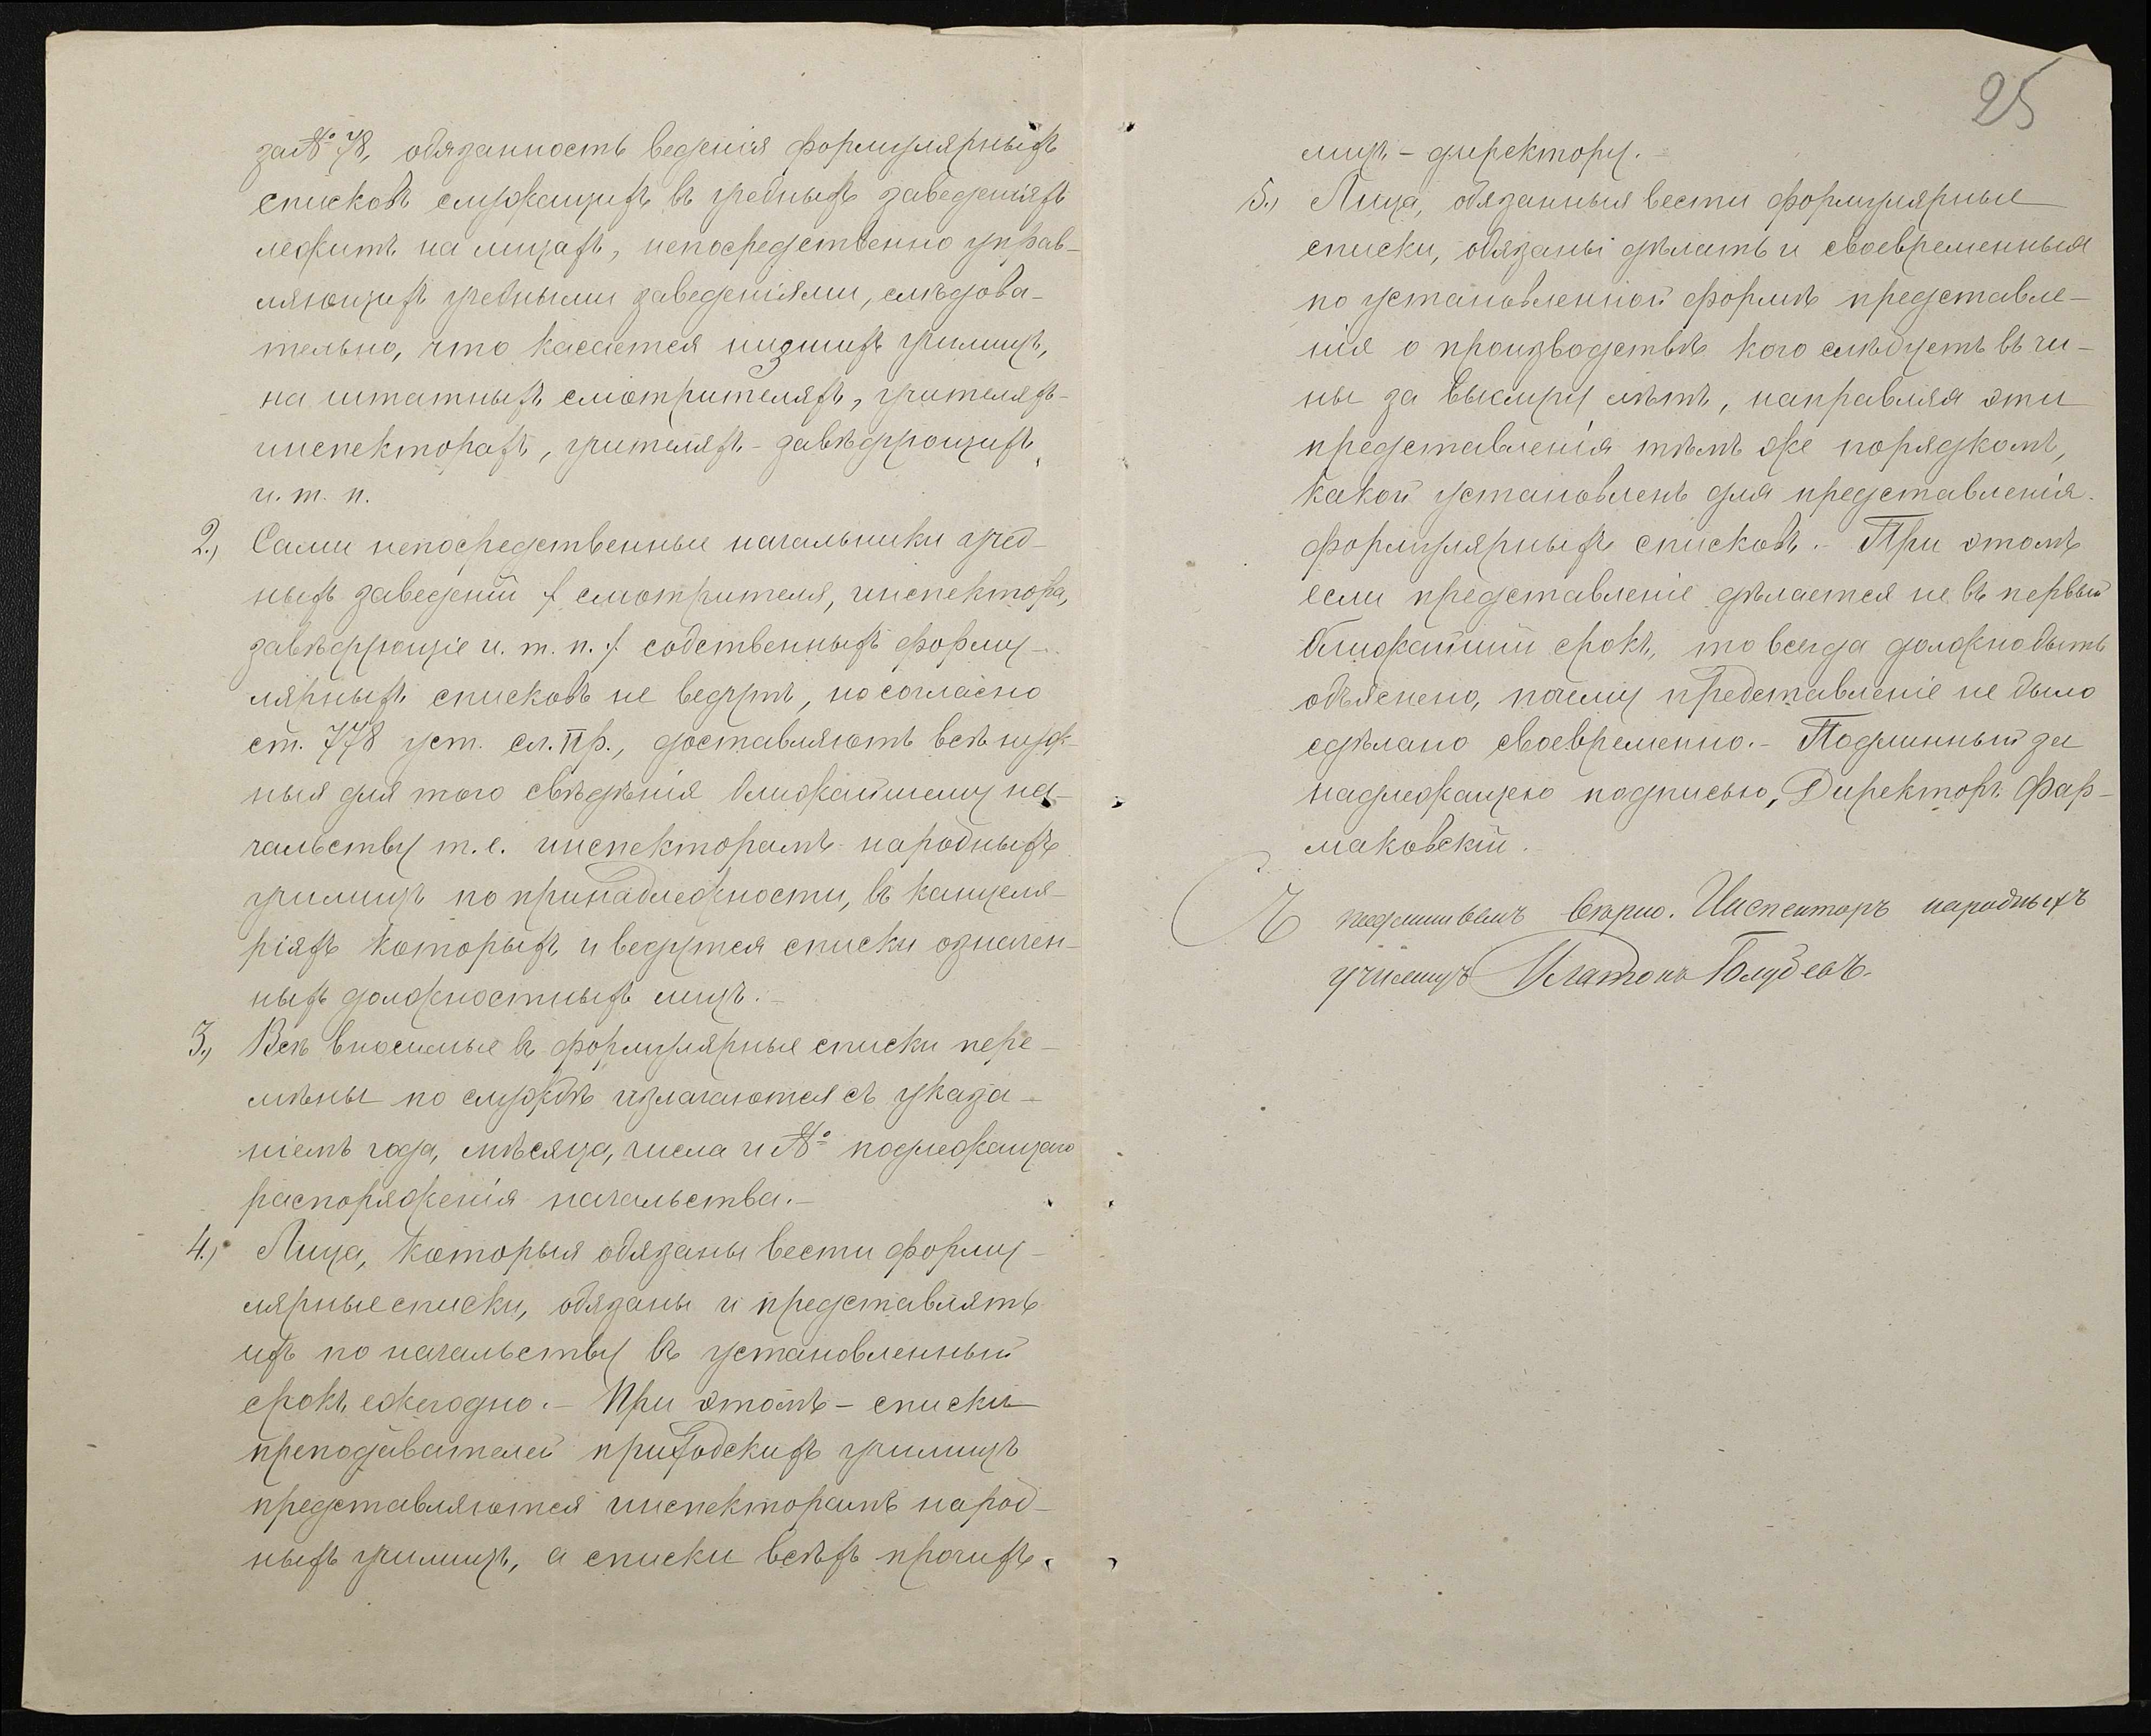 за № 78, обязанность веденія формулярныхъ
списковъ служащихъ въ учебныхъ заведеніяхъ
лежитъ на лицахъ, непосредственно управ-
ляющихъ учебными заведеніями, слѣдова-
тельно, что касается низшихъ училищъ,
на штатныхъ смотрителяхъ, учителяхъ-
инспекторахъ, учителяхъ-завѣдующихъ
и. т. п.
2., Сами непосредственные начальники учеб-
ныхъ заведеній / смотрителя, инспектора,
завѣдующіе и. т. п. / собственныхъ форму-
лярныхъ списковъ не ведутъ, но согласно
ст. 778 уст. сл. Пр., доставляютъ всѣ нуж-
ныя для того свѣдѣнія ближайшему на-
чальству т. е. инспекторамъ народныхъ
училищъ по принадлежности, въ канцеля-
ріяхъ которыхъ и ведутся списки означен-
ныхъ должностныхъ лицъ.-
3., Всѣ вносимые въ формулярные списки пере-
мѣны по службѣ излагаются съ указа-
ніемъ года, мѣсяца, числа и № подлежащаго
распоряженія начальства.-
4., Лица, которыя обязаны вести форму-
лярные списки, обязаны и представлять
ихъ по начальству въ установленный
срокъ ежегодно.- При этомъ - списки
преподавателей приходскихъ училищъ
представляются инспекторамъ народ-
ныхъ училищъ, а списки всѣхъ прочихъ
25
лицъ - директору.-
5., Лица, обязанныя вести формулярные
списки, обязаны дѣлать и своевременныя
по установленной формѣ представле-
нія о производствѣ кого слѣдуетъ въ чи-
ны за выслугу лѣтъ, направляя эти
представленія тѣмъ же порядкомъ,
какой установленъ для представленія
формулярныхъ списковъ.- При этомъ
если представленіе дѣлается не въ первый
ближайшій срокъ, то всегда должно быть
объяснено, почему представленіе не было
сдѣлано своевременно.- Подлинный за
надлежащею подписью, Директоръ Фар-
маковскій.
Съ подлиннымъ вѣрно. Инспекторъ народныхъ
училищъ Платонъ Голубевъ.